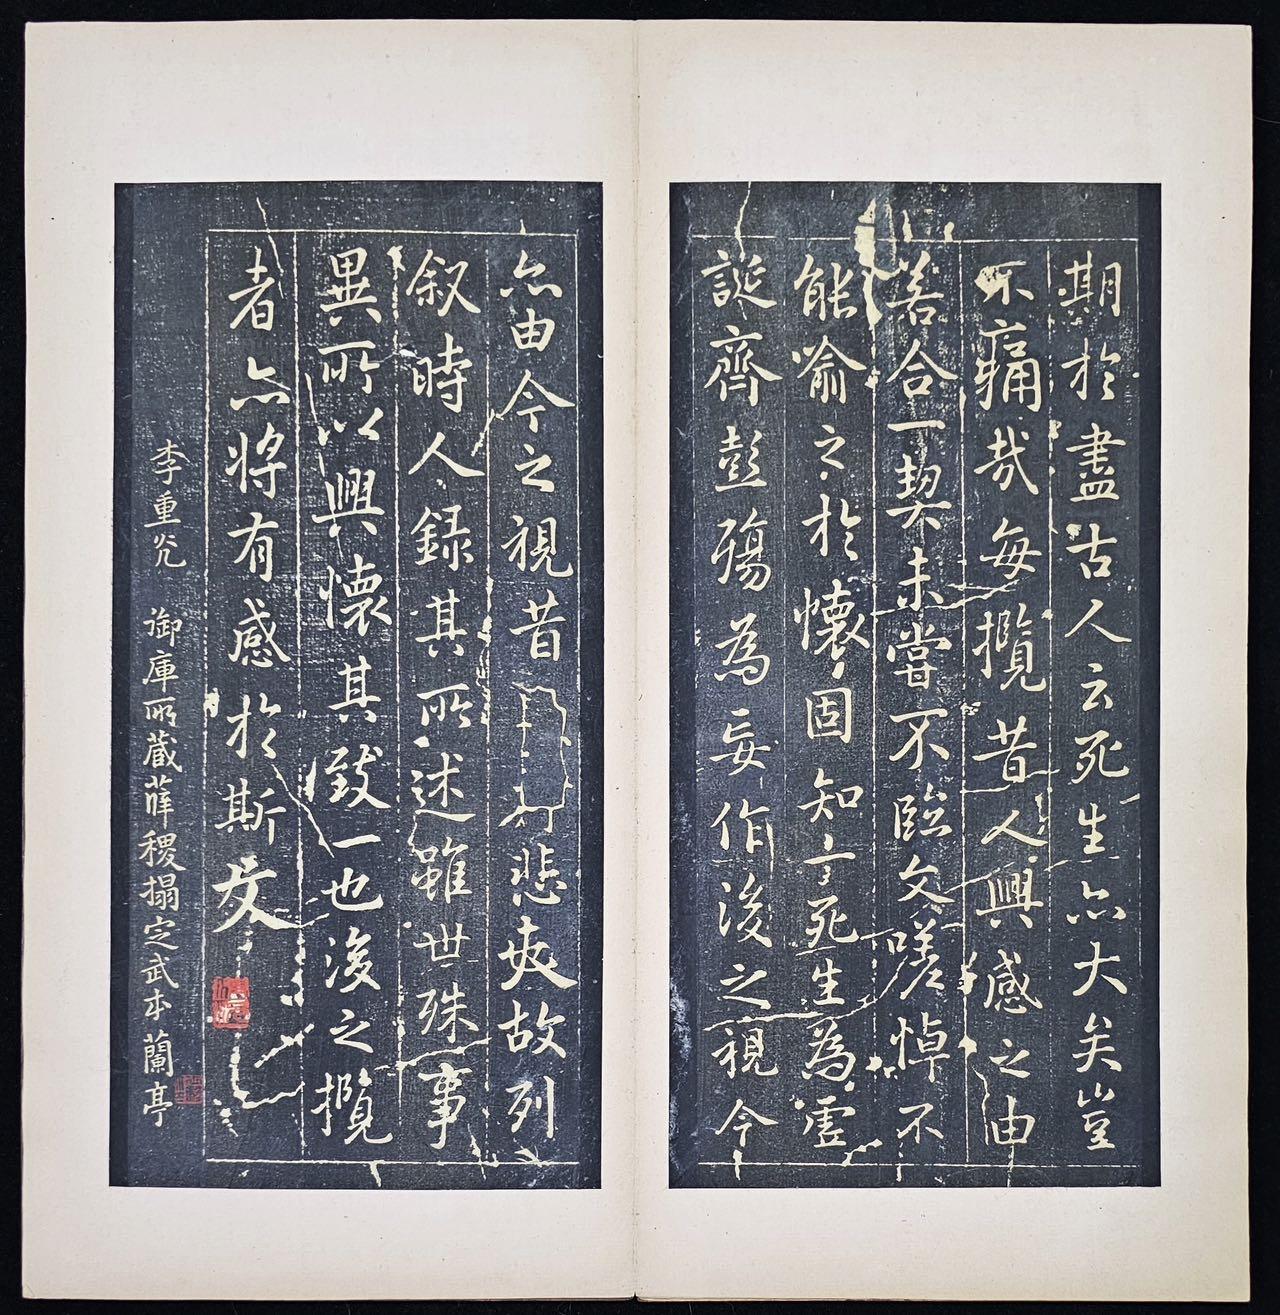 期於盡古人云死生亦大矣豈
不痛哉每攬昔人興感之由
若合一契未嘗不臨文嗟悼不
能喻之於懷固知一死生為虛
誕齊彭殤為妄作後之視今
亦由今之視昔悲夫故列
叙時人錄其所述雖世殊事
異所以興懷其致一也後之攬
者亦將有感於斯文
李重光 御庫所藏薛稷搨定武本蘭亭